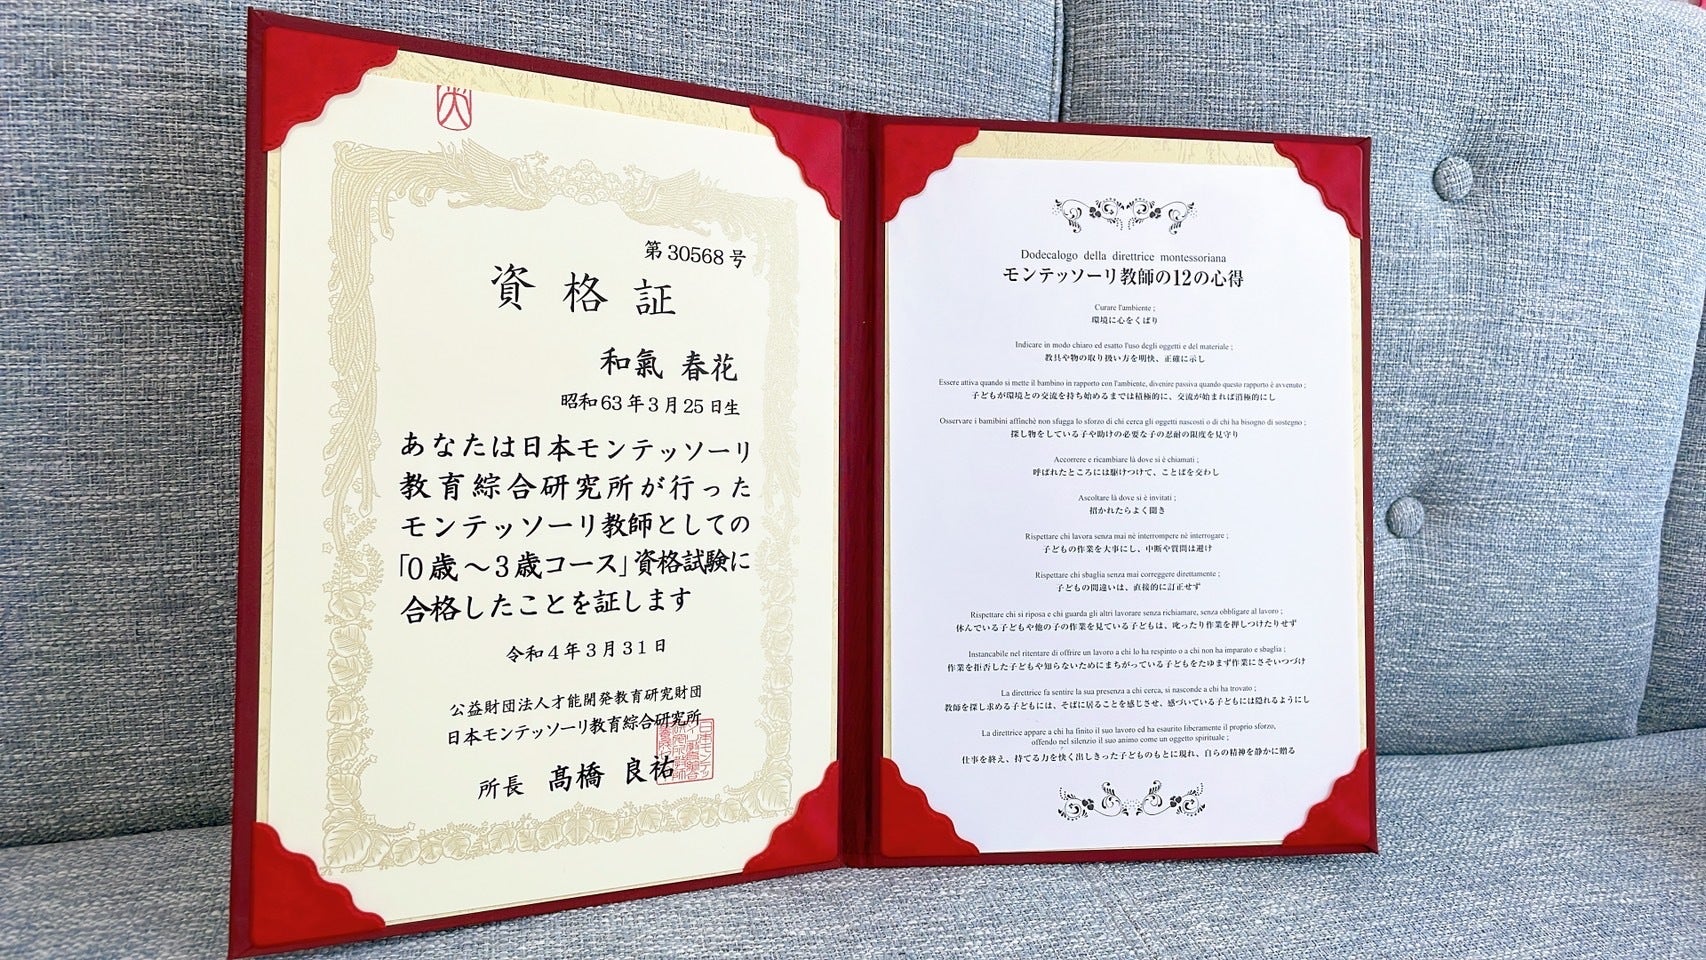 第30568号
資格証
和氣 春花
昭和63年3月25日生
あなたは日本モンテッソーリ
教育綜合研究所が行った
モンテッソーリ教師としての
「0歳～3歳コース」資格試験に
合格したことを証します
令和4年3月31日
公益財団法人才能開発教育研究財団
日本モンテッソーリ教育綜合研究所
所長 髙橋 良祐
Dodecalogo della direttrice montessoriana
モンテッソーリ教師の12の心得
Curare l'ambiente ;
環境に心をくばり
Indicare in modo chiaro ed esatto l'uso degli oggetti e del materiale ;
教具や物の取り扱い方を明快、正確に示し
Essere attiva quando si mette il bambino in rapporto con l'ambiente, divenire passiva quando questo rapporto è avvenuto ;
子どもが環境との交流を持ち始めるまでは積極的に、交流が始まれば消極的にし
Osservare i bamibini affinchè non sfugga lo sforzo di chi cerca gli oggetti nascosti o di chi ha bisogno di sostegno ;
探し物をしている子や助けの必要な子の忍耐の限度を見守り
Accorrere e ricambiare là dove si è chiamati ;
呼ばれたところには駆けつけて、ことばを交わし
Ascoltare là dove si è invitati ;
招かれたらよく聞き
Rispettare chi lavora senza mai né interrompere né interrogare ;
子どもの作業を大事にし、中断や質問は避け
Rispettare chi sbaglia senza mai correggere direttamente ;
子どもの間違いは、直接的に訂正せず
Rispettare chi si riposa e chi guarda gli altri lavorare senza richiamare, senza obbligare al lavoro ;
休んでいる子どもや他の子の作業を見ている子どもは、叱ったり作業を押しつけたりせず
Instancabile nel ritentare di offrire un lavoro a chi lo ha respinto o a chi non ha imparato e sbaglia ;
作業を拒否した子どもや知らないためにまちがっている子どもをたゆまず作業にさそいつづけ
La direttrice fa sentire la sua presenza a chi cerca, si nasconde a chi ha trovato ;
教師を探し求める子どもには、そばに居ることを感じさせ、感づいている子どもには隠れるようにし
La direttrice appare a chi ha finito il suo lavoro ed ha esaurito liberamente il proprio sforzo,
offendo nel silenzio il suo animo come un oggetto spirituale ;
仕事を終え、持てる力を快く出しきった子どものもとに現れ、自らの精神を静かに贈る